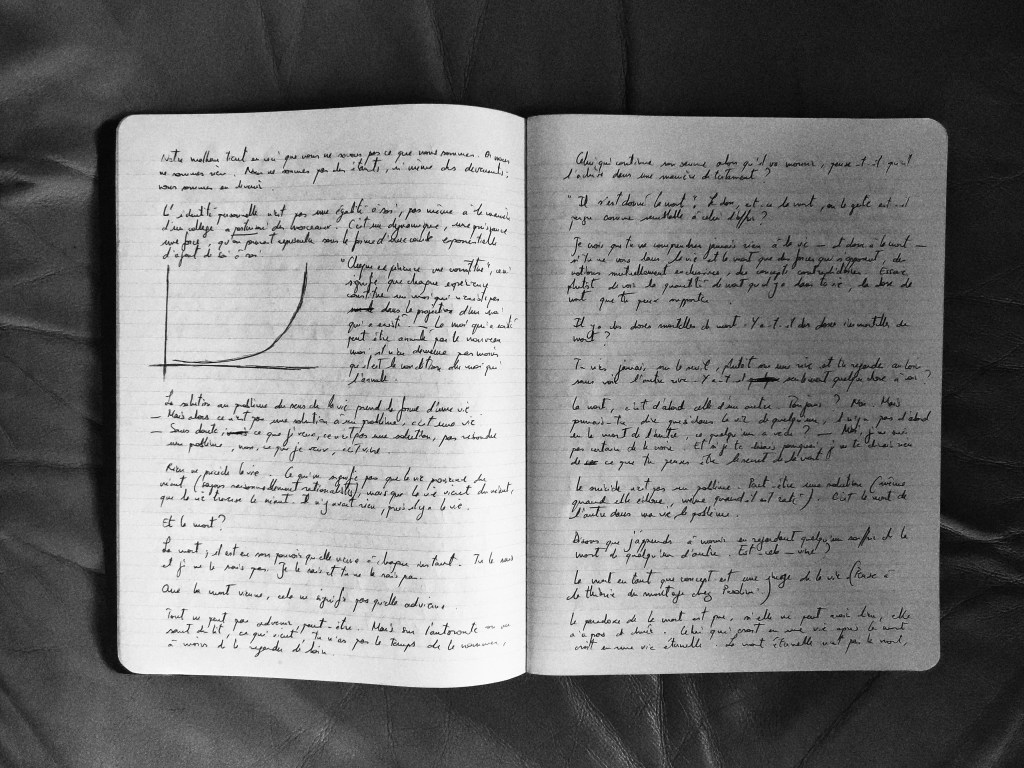 Notre malheur tient en ceci que nous ne savons pas ce que nous sommes. Or nous
ne sommes rien. Nous ne sommes pas des étants, ni même des devenants ;
nous sommes en devenir.
L'identité personnelle n'est pas une égalité à soi, pas même à la manière
d'un collage a posteriori des morceaux. C'est un dynamique, une puissance
une force, qu'on pourrait représenter sous la forme d'une courbe exponentielle
d'ajout de soi à soi
"Chaque expérience me constitue", ceci
signifie que chaque expérience
constitue un moi qui n'existe pas
dans la projection d'un moi
qui a existé. Le moi qui a existé
peut être annulé par le nouveau
moi, il n'en demeure pas moins
qu'il est la condition du moi qui
l'annule.
La solution au problème du sens de la vie prend la forme d'une vie.
— Mais alors ce n'est pas une solution à un problème, c'est une vie
— Sans doute, ce que je veux, ce n'est pas une solution, pas résoudre
un problème, non, ce que je veux, c'est vivre.
Rien ne précède la vie — Ce qui ne signifie pas que la vie provient du
néant (soyons raisonnablement rationalistes), mais que la vie vient du néant,
que la vie traverse le néant. Il n'y avait rien, puis il y a la vie.
Et la mort ?
La mort, il est en son pouvoir qu'elle vienne à chaque instant. Tu le sais
et je ne le sais pas. Je le sais et tu ne le sais pas.
Que la mort vienne, cela ne signifie pas qu'elle advienne.
Tout ne peut pas advenir, peut-être. Mais sur l'autoroute
à moins de le regarder de loin.
Celui qui continue son œuvre alors qu'il va mourir, pense-t-il qu'il
l'achève dans une manière de testament ?
"Il s'est donné la mort". Le don, est-ce la mort, ou le geste est-il
perçu comme semblable à celui d'offrir ?
Je crois que tu ne comprendras jamais rien à la vie — et donc à la mort —
si tu ne vois dans la vie et la mort que des forces qui s'opposent, des
notions mutuellement exclusives, des concepts contradictoires. Essaie
plutôt de voir la quantité de mort qu'il y a dans ta vie, la dose de
mort que tu peux supporter.
Il y a des doses mortelles de mort. Y a-t-il des doses immortelles de
mort ?
sans voir l'autre rive. Y a-t-il seulement quelque chose à voir ?
La mort, c'est d'abord celle d'un autre. Toujours ? Non. Mais
pourrais-tu dire que dans la vie de quelqu'un, il n'y a pas d'abord
eu la mort de l'autre, — Moi, je n'en suis
pas certain de le croire. Et si je te disais pourquoi, je te dirais rien
de ce que tu penses être le secret de la mort.
Le suicide n'est pas un problème. Peut-être une solution (même
quand elle échoue, même quand il est raté !). C'est la mort de
l'autre dans ma vie, le problème.
Disons que j'apprends à mourir en regardant quelqu'un souffrir de la
mort de quelqu'un d'autre. Est-ce vivre ?
La mort en tant que concept est une image de la vie (Pense à
la théorie du montage chez Pasolini.)
Le paradoxe de la mort est que, si elle ne peut avoir lieu, elle
n'a pas de durée. Celui qui croit en une vie après la mort
croit en une vie éternelle. La mort éternelle n'est pas la mort,